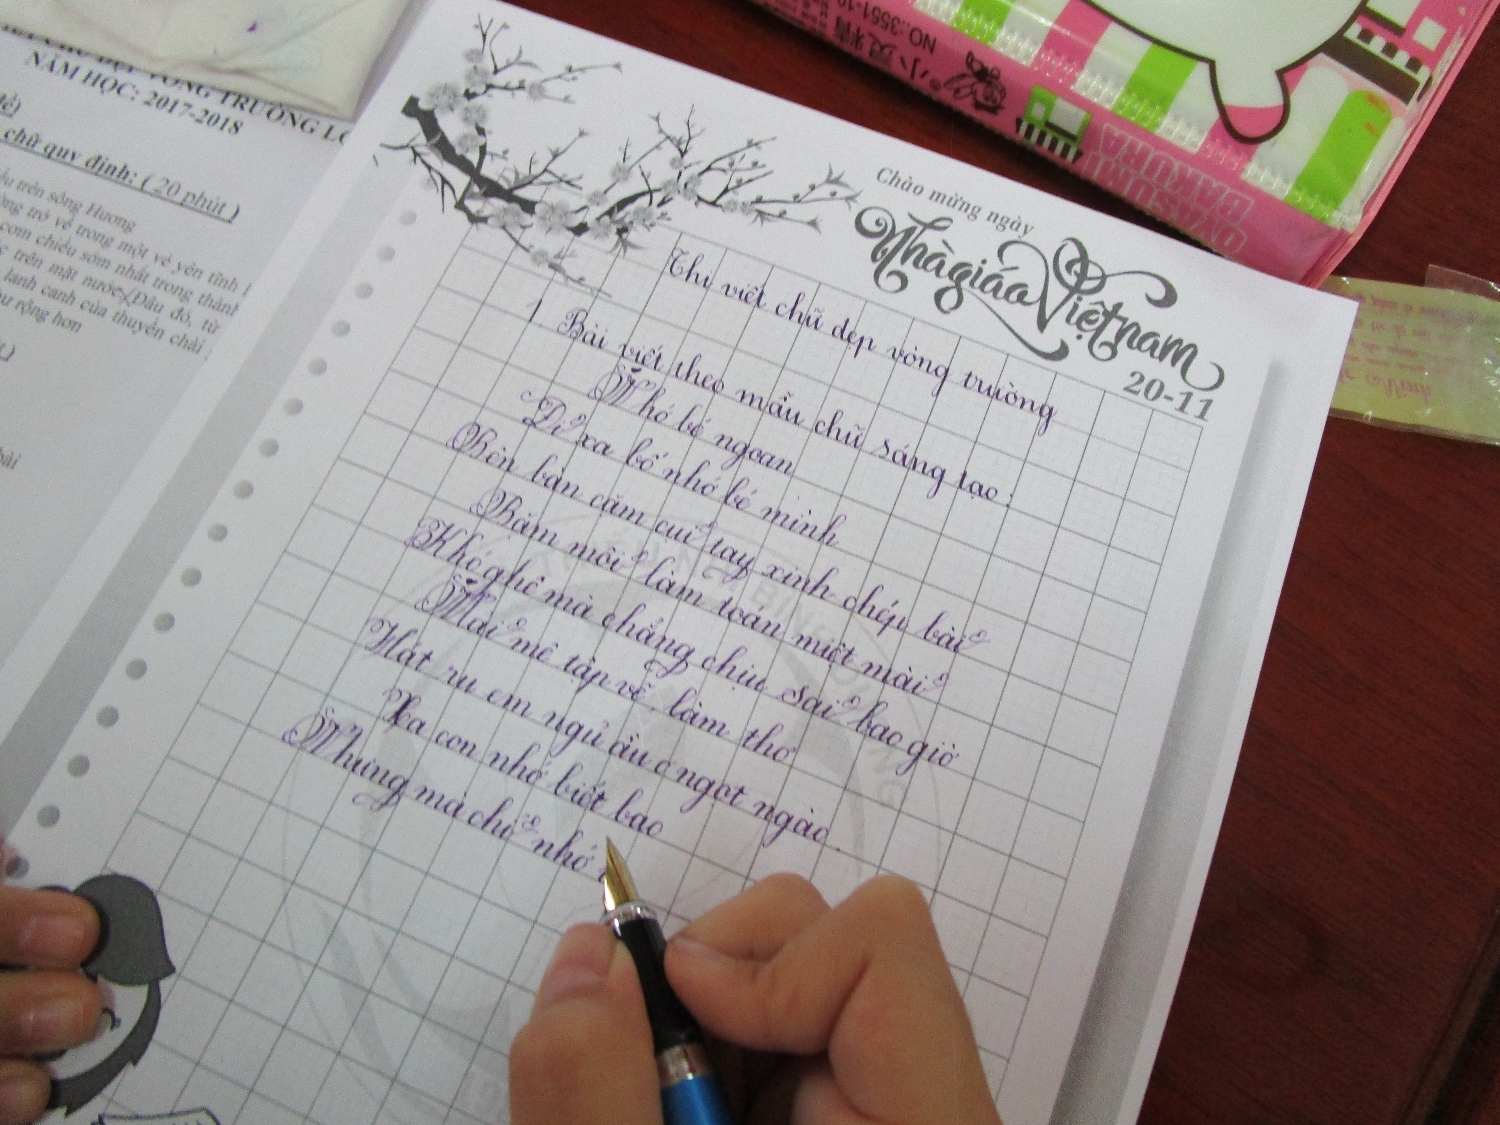 NĂM HỌC: 2017-2018
chữ quy định: ( 20 phút )
trên sông Hương
trở về trong một vẻ yên tĩnh
cơm chiều sớm nhất trong thành
trên mặt nước. Đâu đó, từ
lanh canh của thuyền chài
rộng hơn
NO.:3551-1
OYASUMI
BAKURA
Chào mừng ngày
Nhà giáo Việt nam
20-11
Thi viết chữ đẹp vòng trường
1. Bài viết theo mẫu chữ sáng tạo:
Nhớ bé ngoan
Đi xa bố nhớ bé mình
Bên bàn cặm cụi tay xinh chép bài
Bặm môi làm toán miệt mài
Khó ghê mà chẳng chịu sai bao giờ
Mải mê tập vẽ, làm thơ
Hát ru em ngủ ầu ơ ngọt ngào.
Xa con nhớ biết bao
Nhưng mà chỉ nhớ